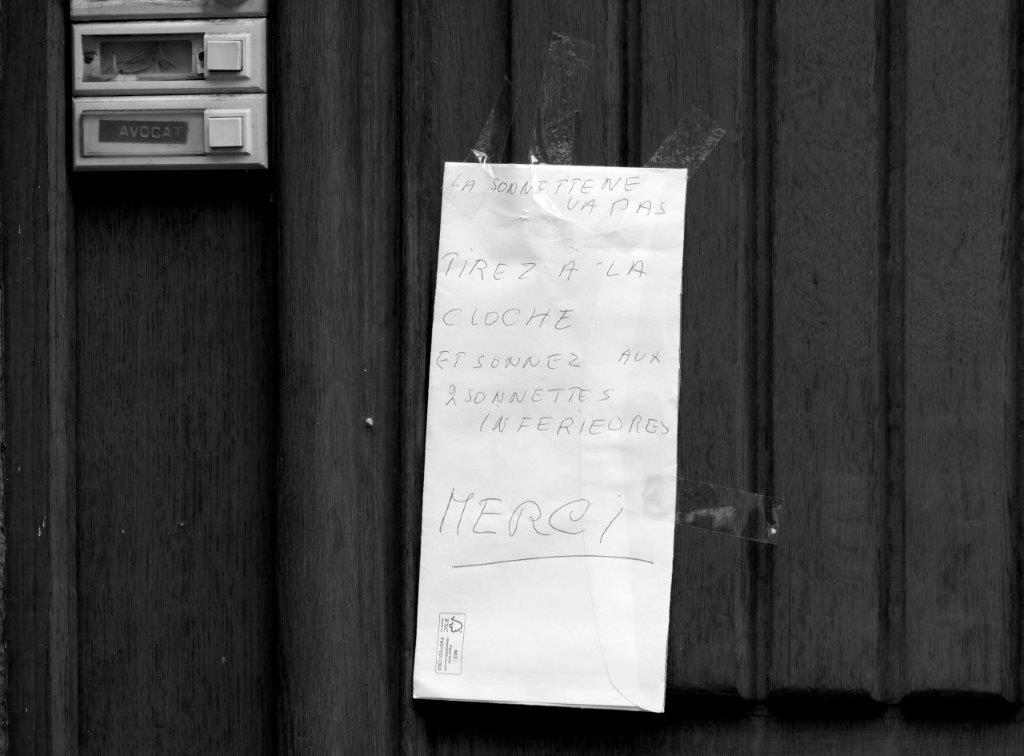 AVOCAT
LA SONNETTE NE
VA PAS
TIREZ À LA
CLOCHE
ET SONNEZ AUX
2 SONNETTES
INFERIEURES
MERCi
FSC
MIX